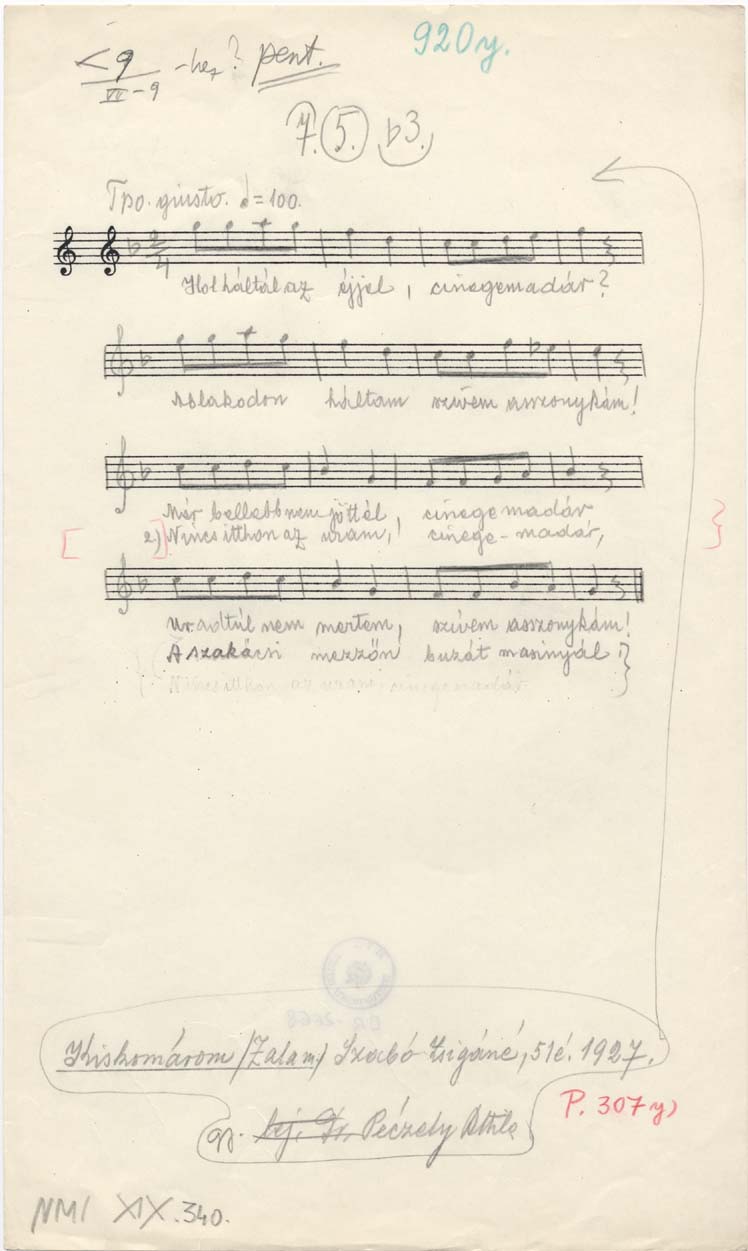 < 9 -hez? pent.
VII-9
920y.
7. 5. b3.
Tpo. giusto. ♩=100.
2/4
Hol háltál az éjjel, cinegemadár?
Ablakodon háltam szívem asszonykám!
Mér bellebb nem jöttél, cinegemadár
2) Nincs itthon az uram, cinege-madár,
Uradtúl nem mertem, szívem asszonykám!
A szakácsi mezzőn buzát masinyál
Kiskomárom /Zalam/ Szabó Zsigáné, 51é. 1927.
P. 307y)
gy. lej. Dr. Péczely Attila
NMI XIX.340.